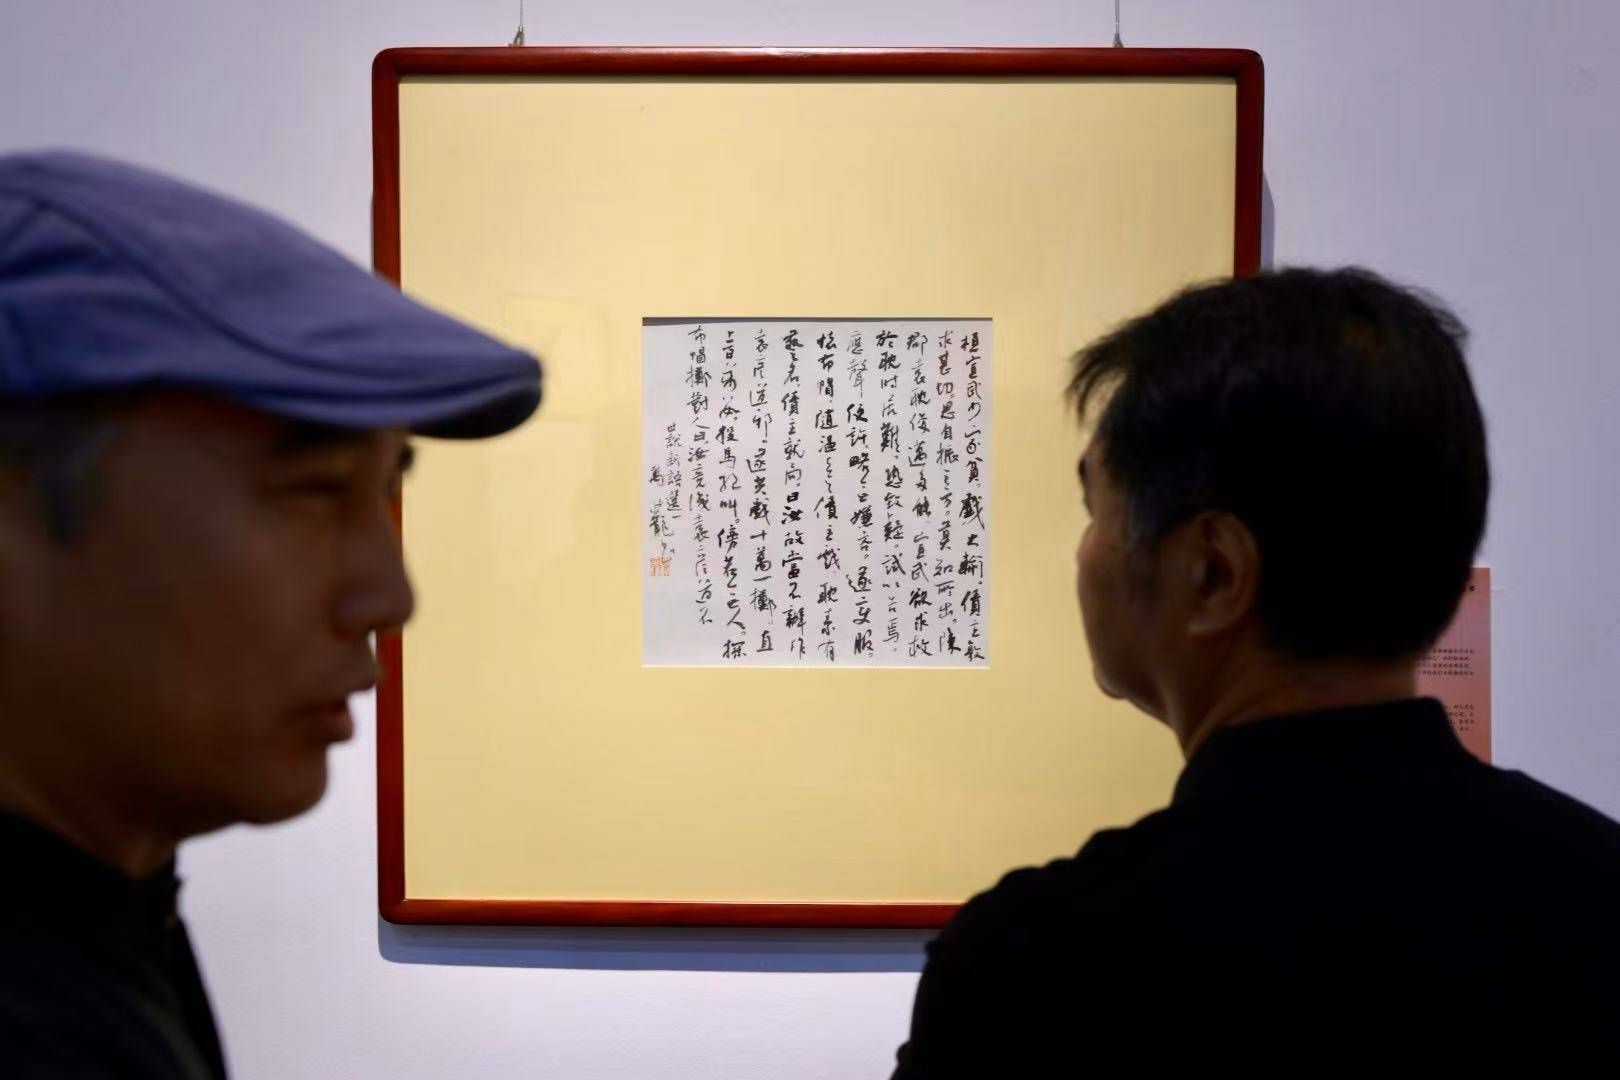 桓宣武少家貧。戲大輸。債主敦
求甚切。思自振之方。莫知所出。陳
郡袁耽俊邁多能。宣武欲求救
於耽時居難。恐致疑。試以告焉。
應聲便許。略無嫌吝。遂變服。
懷布帽。隨溫去與債主戲。耽素有
藝名。債主就局曰汝故當不辦作
袁彥道邪。遂共戲十萬一擲。直
上百萬數。投馬絕叫。傍若無人。探
布帽擲對人曰汝竟識袁彥道不
世說新語選一